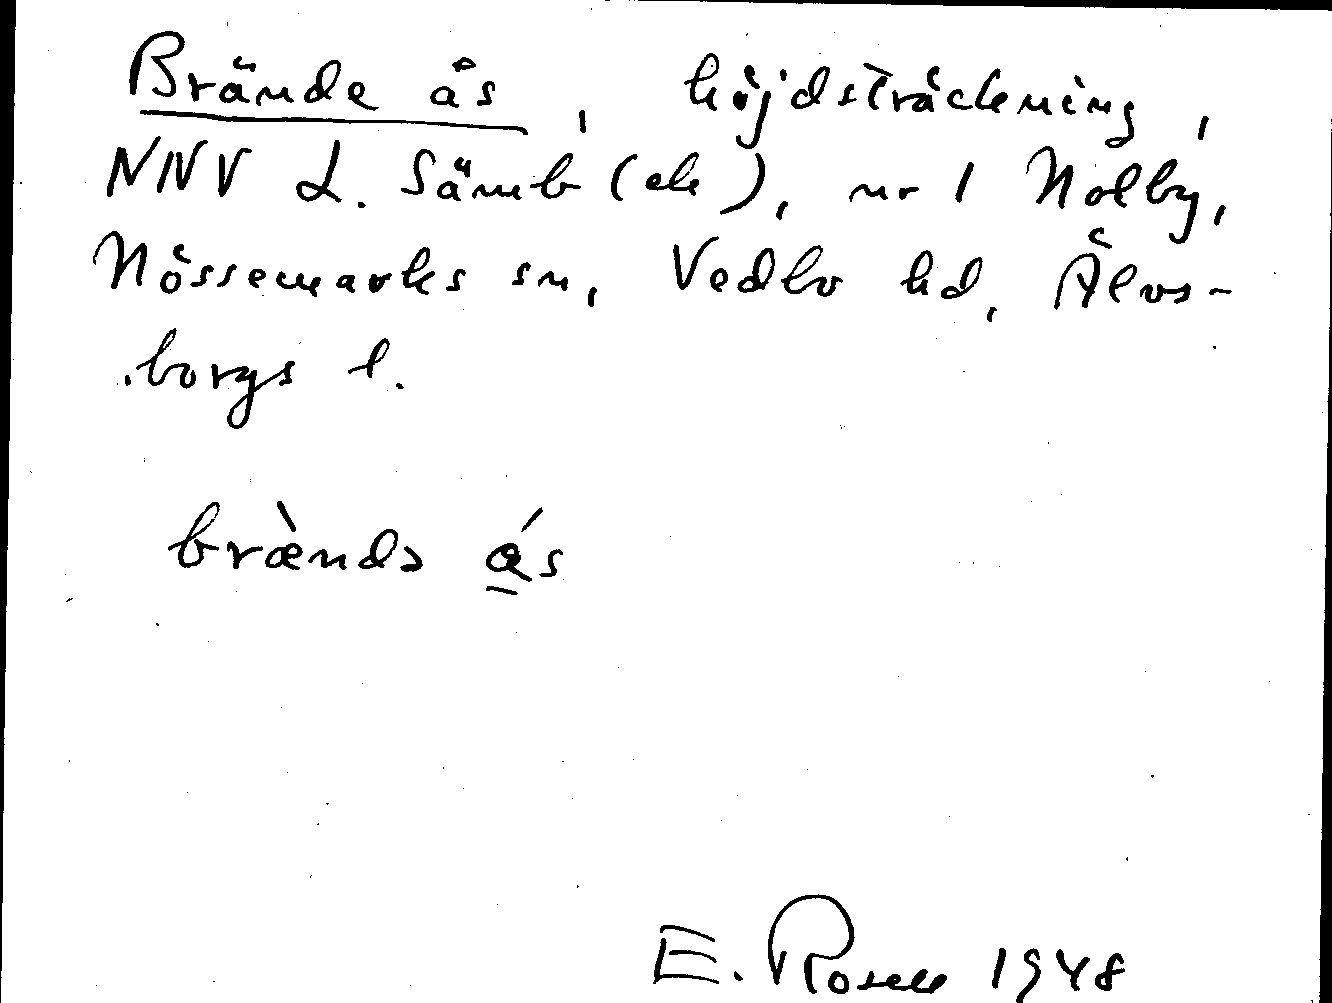 Brände ås, höjdsträckning,
NNV L. Sämb (ek), nr 1 Nolby,
Nössemarks sn, Vedbo hd, Älvs-
borgs l.
brǽndə ás
E. Rosell 1948